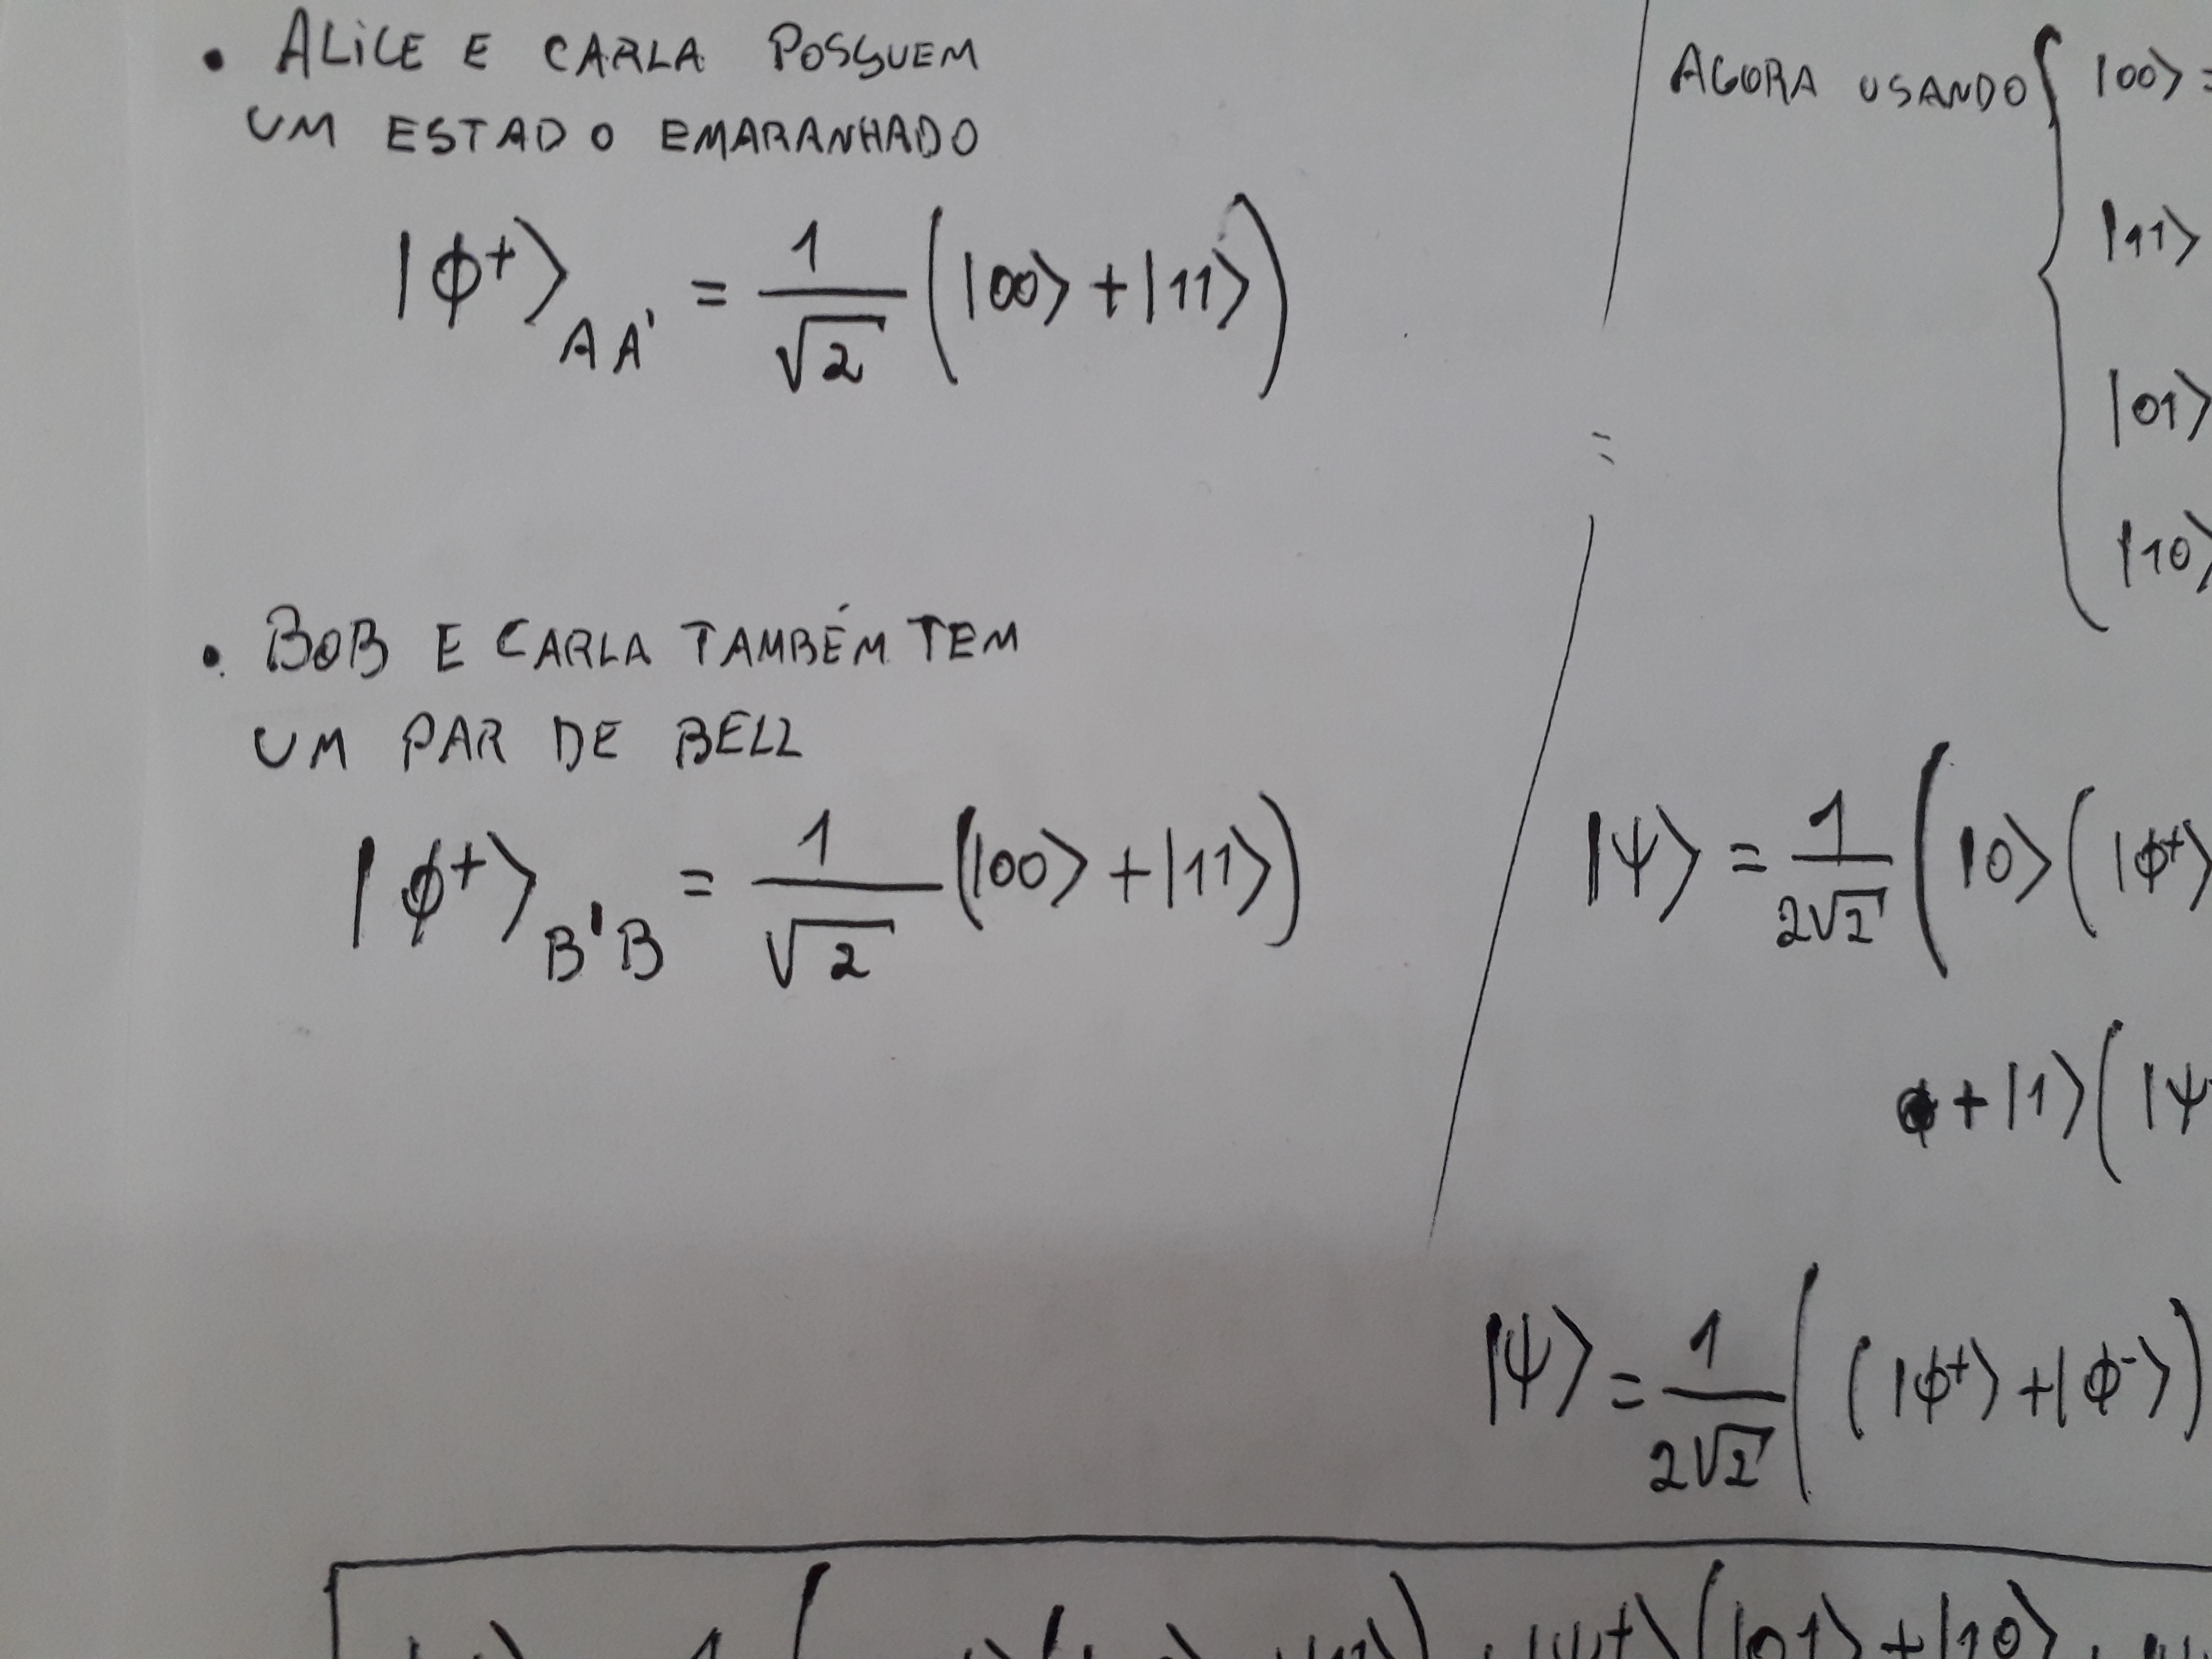 • ALICE E CARLA POSSUEM
UM ESTADO EMARANHADO
|ϕ+⟩AA' = 1/√2 (|00⟩ + |11⟩)
• BOB E CARLA TAMBÉM TEM
UM PAR DE BELL
|ϕ+⟩B'B = 1/√2 (|00⟩ + |11⟩)
AGORA USANDO { |00⟩ =
|11⟩
|01⟩
|10⟩
=
|ψ⟩ = 1/2√2 ( |0⟩ ( |ϕ+⟩
+ |1⟩ ( |ψ
|ψ⟩ = 1/2√2 ( ( |ϕ+⟩ + |ϕ-⟩ )
( |01⟩ + |10⟩